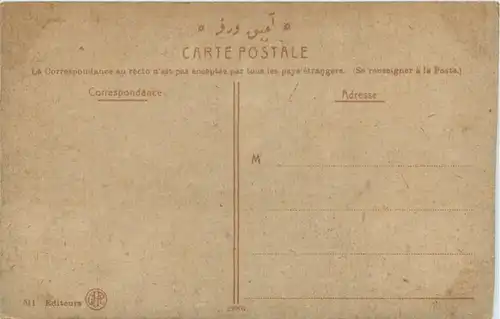 آچيق ورقه
CARTE POSTALE
La Correspondance au recto n'est pas acceptée par tous les pays étrangers. (Se renseigner à la Poste.)
Correspondance
Adresse
M
Editeurs